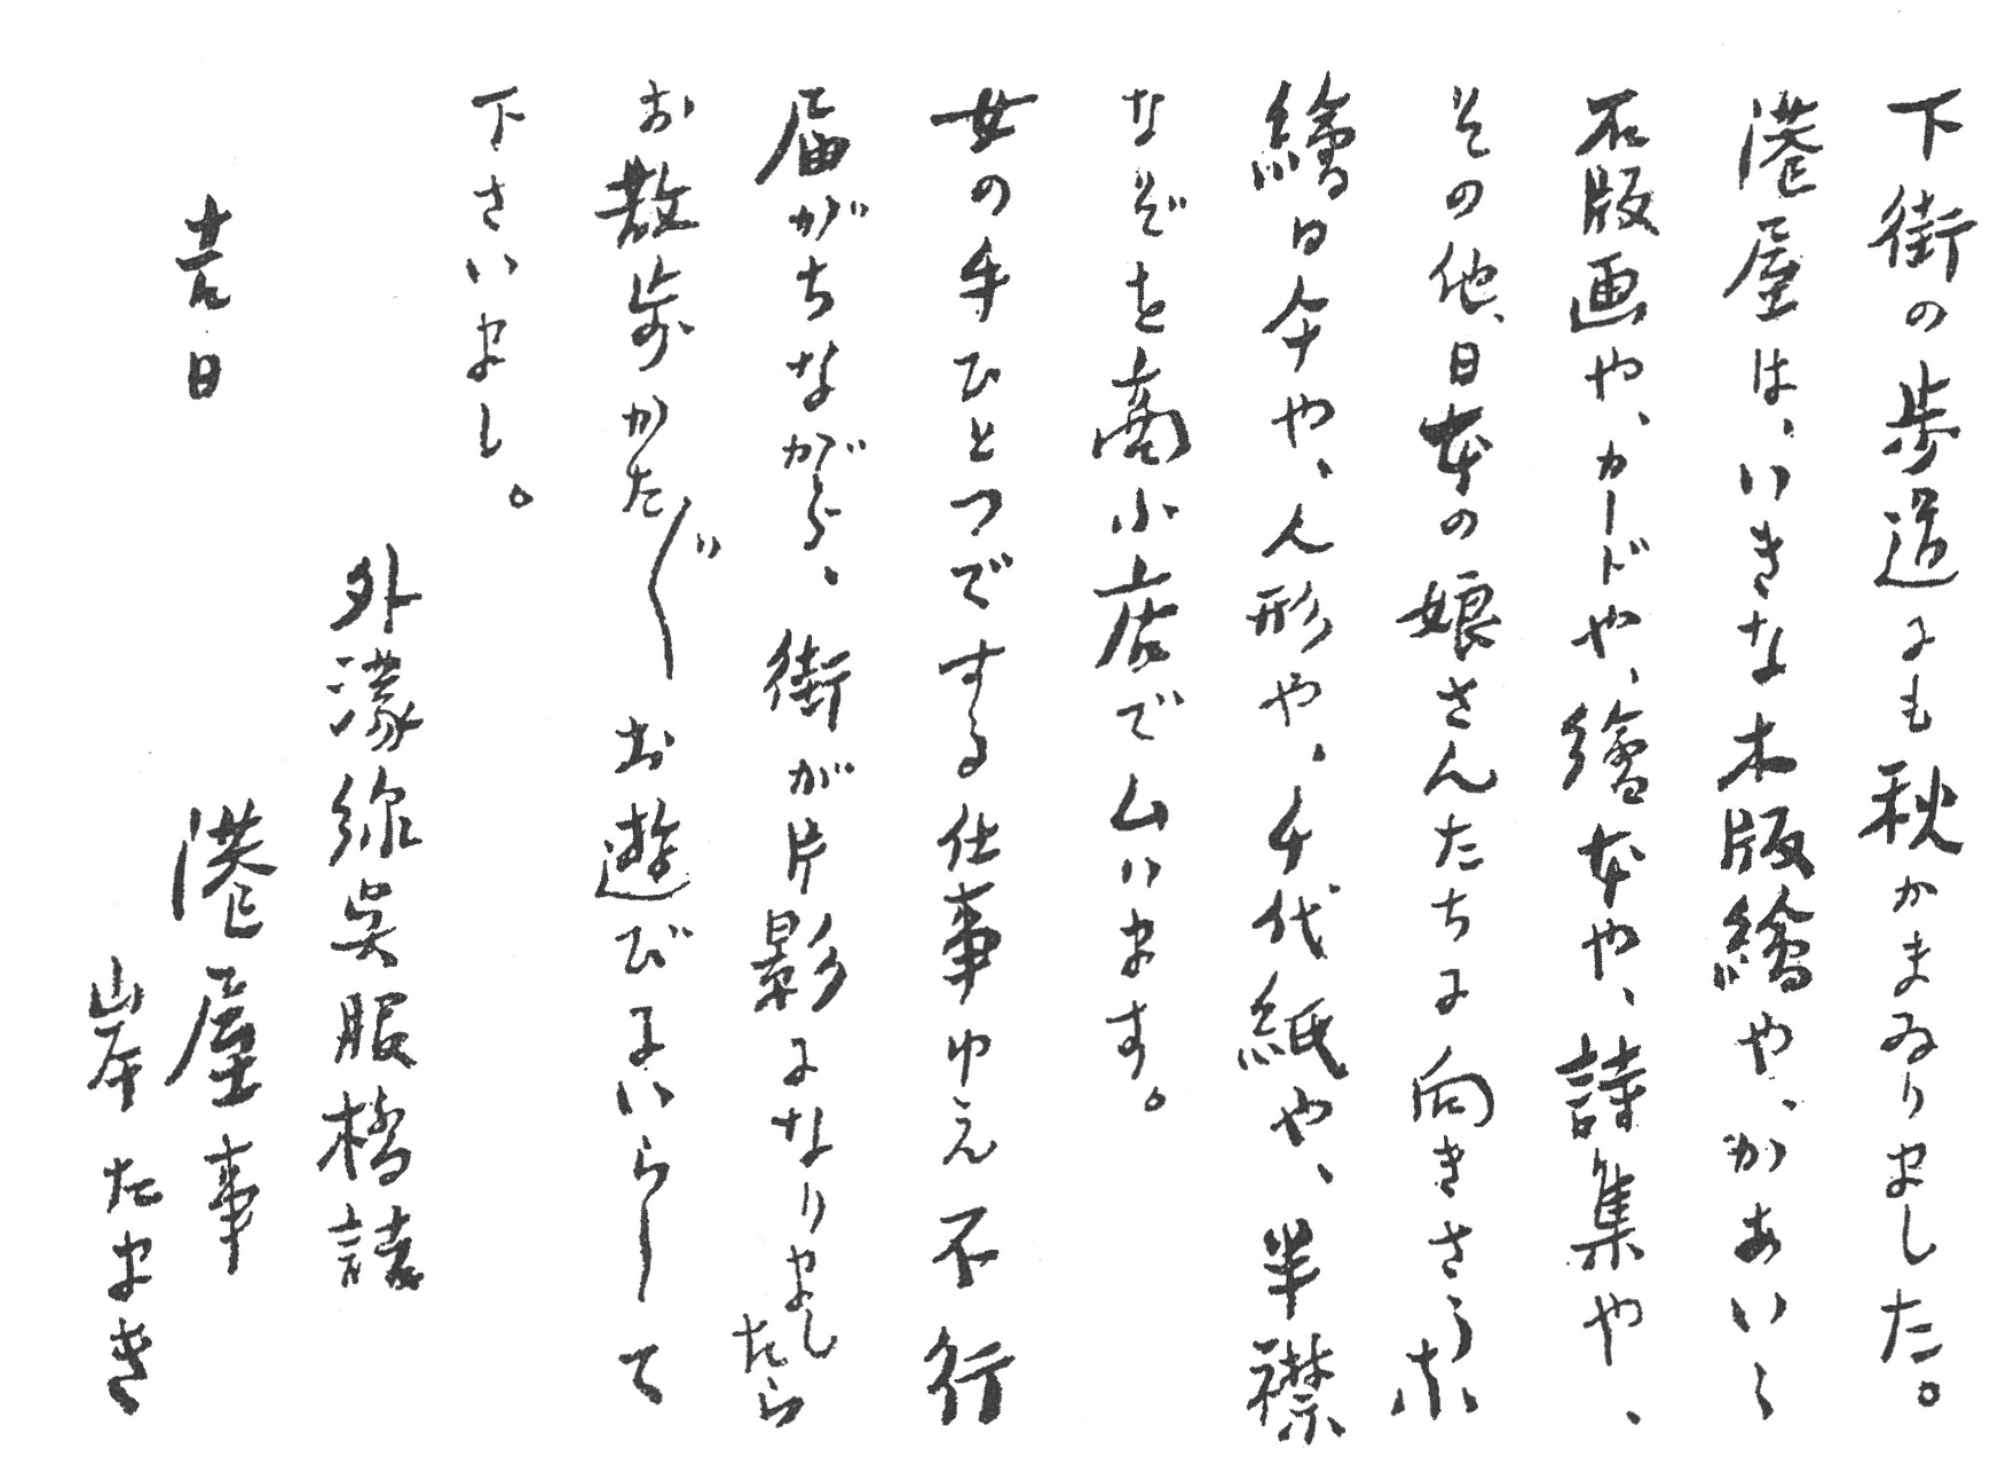 下街の歩道にも秋がまゐりました。
港屋は、いきな木版絵や、かあいい
石版画や、カードや、繪本や、詩集や、
その他、日本の娘さんたちに向きさうな
繪日傘や、人形や、千代紙や、半襟
なぞを商ふ小店でムいます。
女の手ひとつでする仕事ゆえ不行
届がちながら、街が片影になりましたら
お散歩かた〴〵お遊びにいらして
下さいまし。
外濠線呉服橋詰
十月一日
港屋事
岸たまき